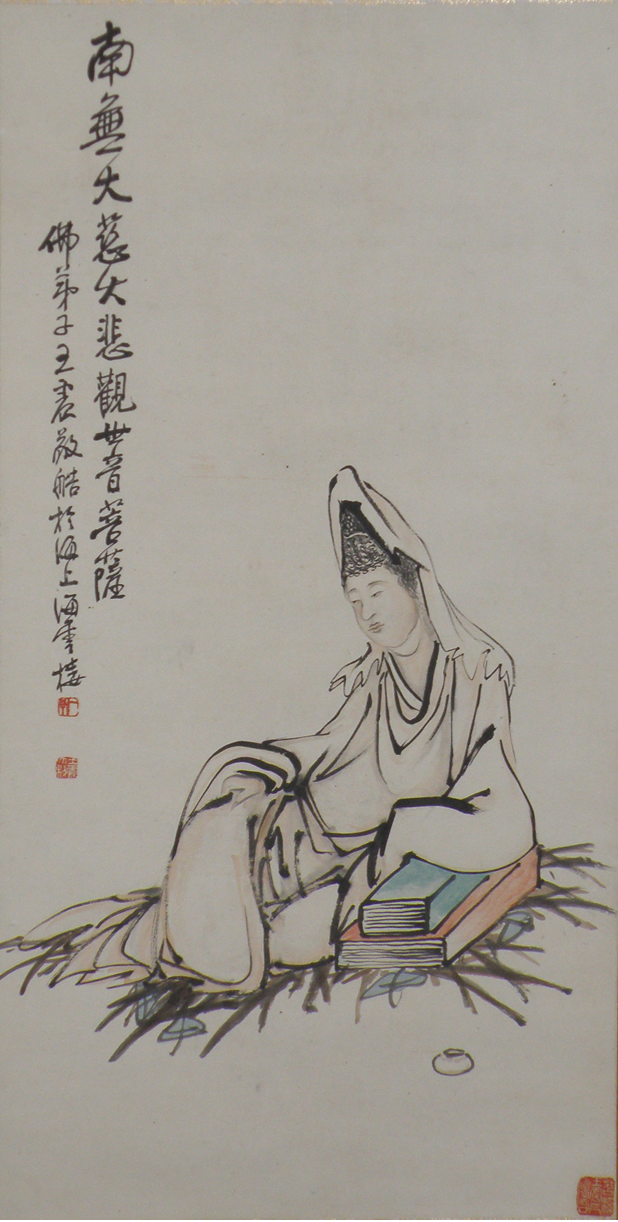 南無大慈大悲觀世音菩薩
佛弟子王震敬皓於海上海雲樓